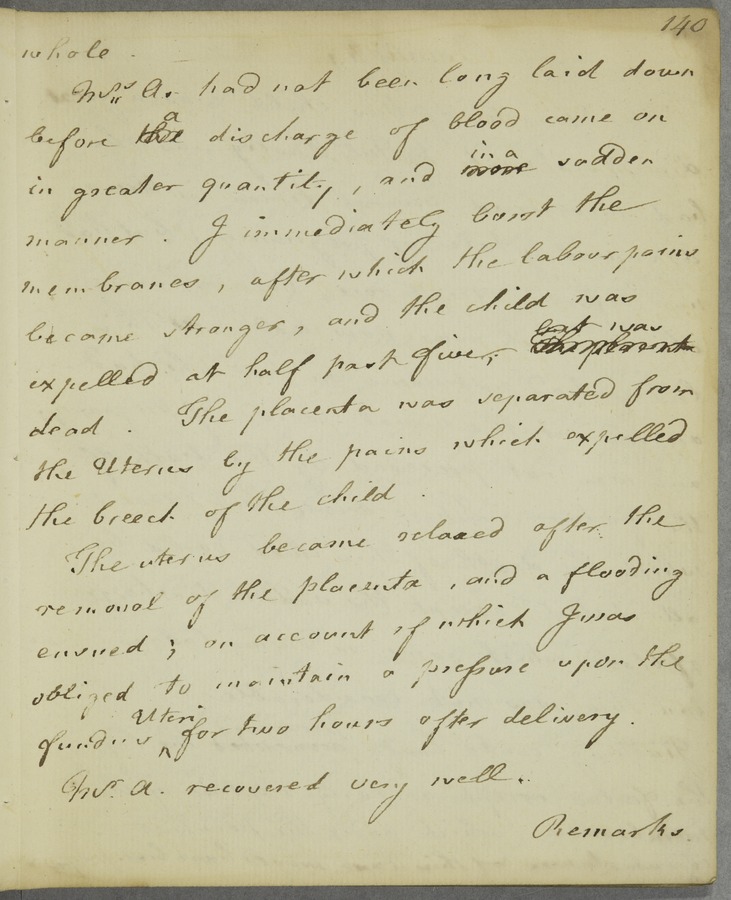 140
whole.
Mrs. A. had not been long laid down
before the a discharge of blood came on
in greater quantity, and more in a sudden
manner. I immediately burst the
membranes, after which the labour pains
became stronger, and the child was
expelled at half past five, but was
dead. The placenta was separated from
the Uterus by the pains which expelled
the breech of the child.
The uterus became relaxed after the
removal of the placenta, and a flooding
ensued; on account of which I was
obliged to maintain a pressure upon the
fundus Uteri for two hours after delivery.
Mrs. A. recovered very well.
Remarks